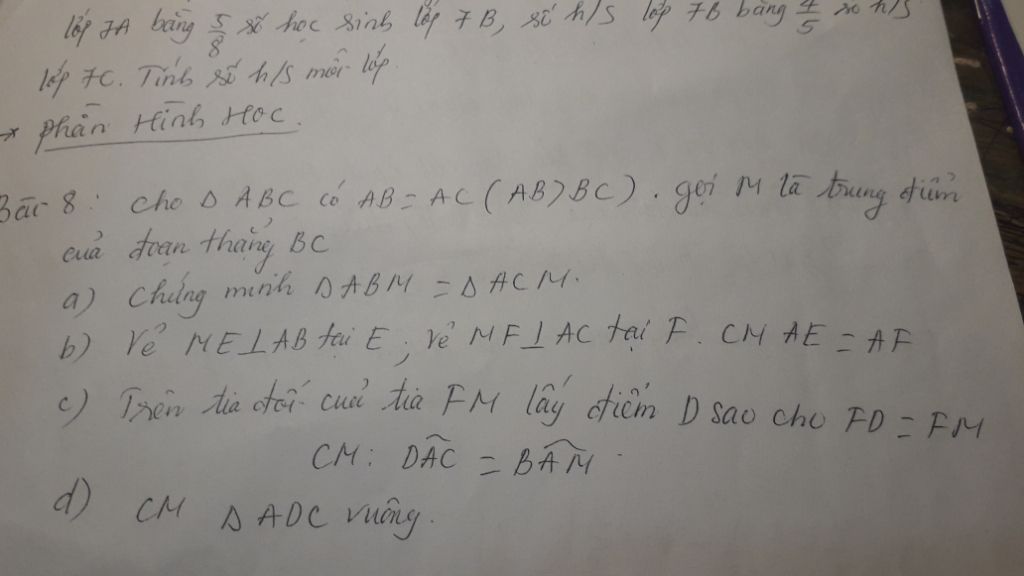 lớp 7A bằng 5/8 số học sinh lớp 7B, số h/s lớp 7B bằng 4/5 số h/s
lớp 7C. Tính số h/s mỗi lớp.
→ Phần Hình Học.
Bài 8: cho Δ ABC có AB = AC (AB > BC). gọi M là trung điểm
của đoạn thẳng BC
a) Chứng minh Δ ABM = Δ ACM.
b) Vẽ ME ⊥ AB tại E ; vẽ MF ⊥ AC tại F. CM AE = AF
c) Trên tia đối của tia FM lấy điểm D sao cho FD = FM
CM: DÂC = BÂM.
d) CM Δ ADC vuông.